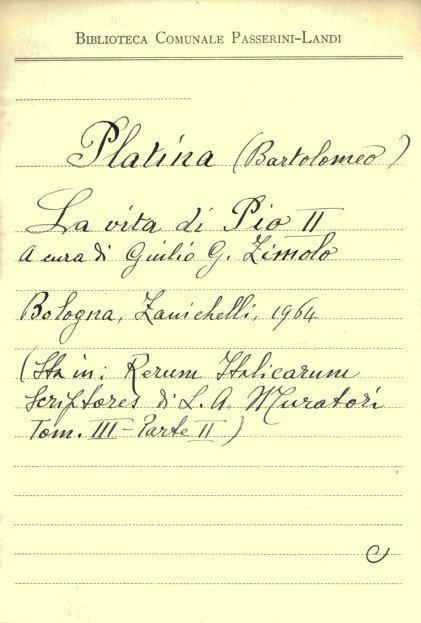 BIBLIOTECA COMUNALE PASSERINI-LANDI
Platina (Bartolomeo)
La vita di Pio II
A cura di Giulio G. Zimolo
Bologna, Zanichelli, 1964
(Sta in: Rerum Italicarum
Scriptores di L. A. Muratori
Tom. III - Parte II)
C